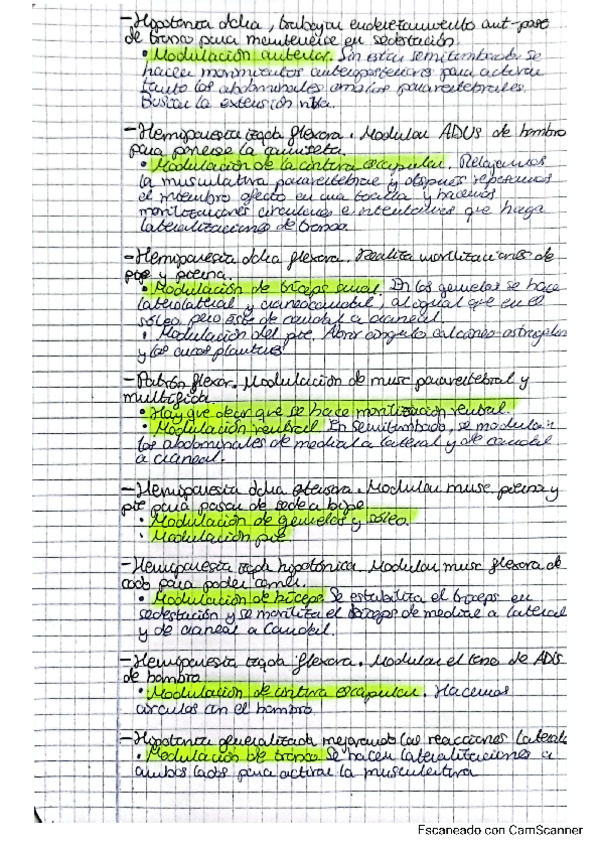 - Hipotonía dcha, trabajar enderezamiento ant-post
de tronco para mantenerse en sedestación.
• Modulación anterior. Sin estar semitumbado se
hacen movimientos anteroposteriores para activar
tanto los abdominales como los paravertebrales.
Buscar la extensión
- Hemiparesia izqda flexora. Modular ADUs de hombro
para ponerse la camiseta.
• Modulación de la cintura escapular. Relajamos
la musculatura paravertebral y después reposamos
el miembro afecto en una toalla y hacemos
movilizaciones circulares e intentamos que haga
lateralizaciones de tronco.
- Hemiparesia dcha flexora. Realiza movilizaciones de
pie y pierna.
• Modulación de tríceps sural. En los gemelos se hace
laterolateral y craneocaudal, al igual que en el
sóleo pero este de caudal a craneal.
• Modulación del pie. Abrir ángulo calcáneo-astragalino
y los arcos plantares
- Patrón flexor. Modulación de musc paravertebral y
multífido.
• Hay que decir que se hace movilización neutral.
• Modulación neutral. En semitumbado, se modulan
los abdominales de medial a lateral y de caudal
a craneal.
- Hemiparesia dcha extensora. Modular musc pierna y
pie para pasar de sede a bipe
• Modulación de gemelos y sóleo.
• Modulación pie.
- Hemiparesia izqda hipotónica. Modular musc flexora de
codo para poder comer.
• Modulación de bíceps. Se estabiliza el bíceps en
sedestación y se moviliza el bíceps de medial a lateral
y de craneal a caudal.
- Hemiparesia izqda flexora. Modular el tono de ADs
de hombro
• Modulación de cintura escapular. Hacemos
círculos con el hombro
- Hipotonía generalizada, mejorando las reacciones laterales
• Modulación de tronco. Se hacen lateralizaciones a
ambos lados para activar la musculatura
Escaneado con CamScanner